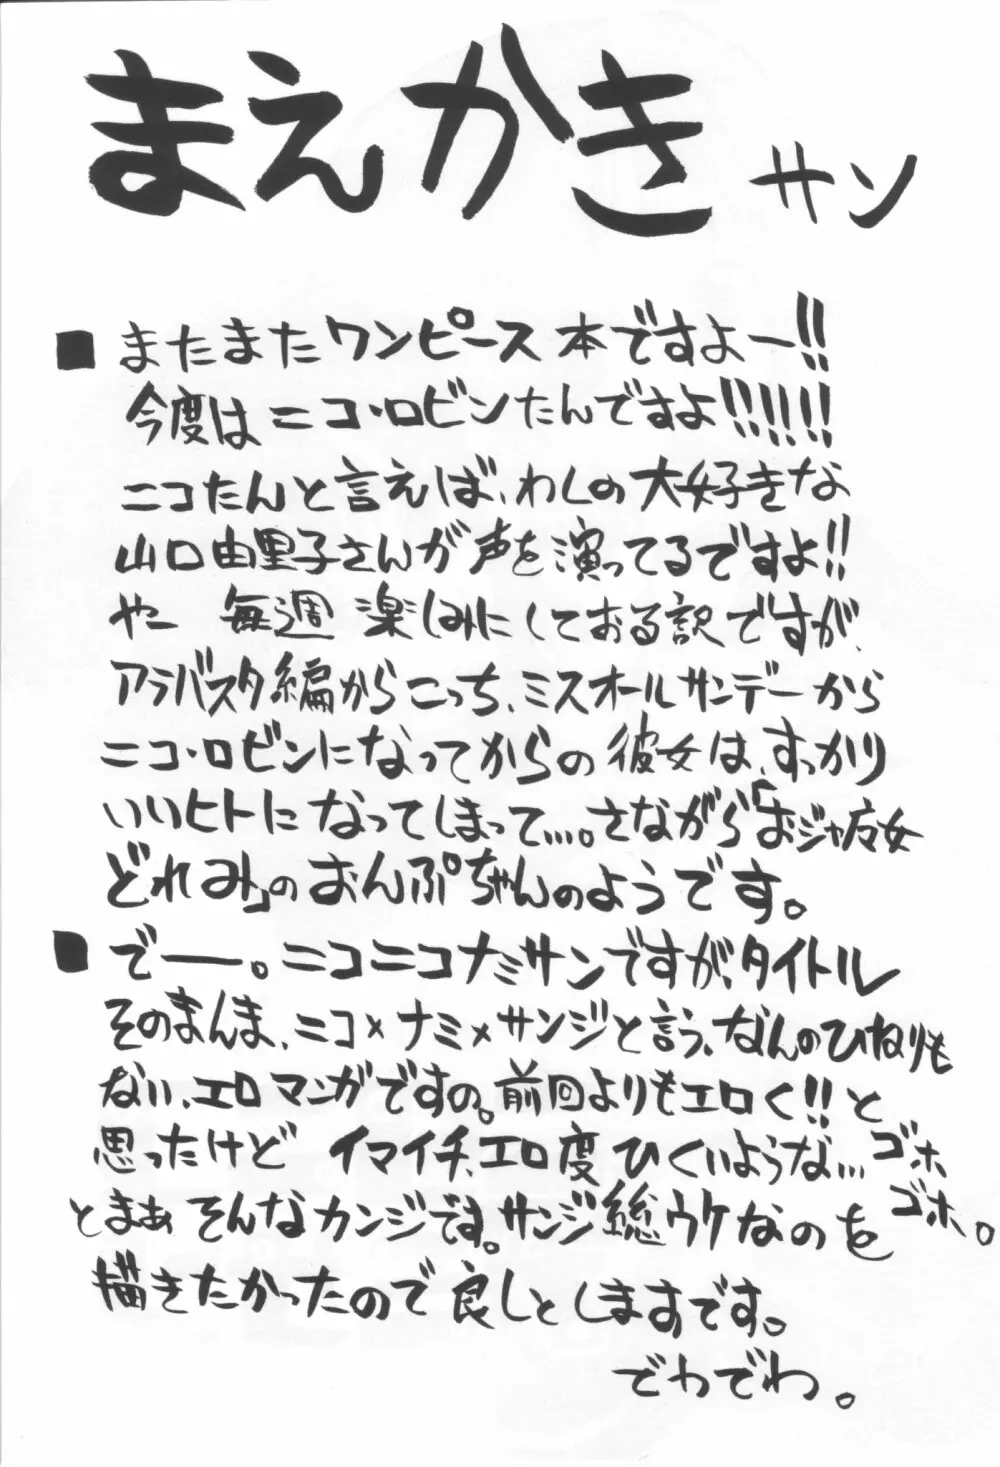 まえかきサン
■またまたワンピース本ですよー!!
今度はニコ・ロビンたんですよ!!!!!!
ニコたんと言えば、わしの大好きな
山口由里子さんが声を演ってるですよ!!
やー 毎週楽しみにしておる訳ですが、
アラバスタ編からこっち、ミスオールサンデーから
ニコ・ロビンになってからの彼女は、すっかり
いいヒトになってしまって…。さながら「おジャ魔女
どれみ」のおんぷちゃんのようです。
■でー。ニコニコナミサンですが、タイトル
そのまんま、ニコ×ナミ×サンジと言う、なんのひねりも
ない、エロマンガですの。前回よりもエロく!!と
思ったけど イマイチ、エロ度ひくいような… ゴホ
ゴホ。
とまぁそんなカンジです。サンジ総ウケなのを
描きたかったので良しとしますです。
でわでわ。